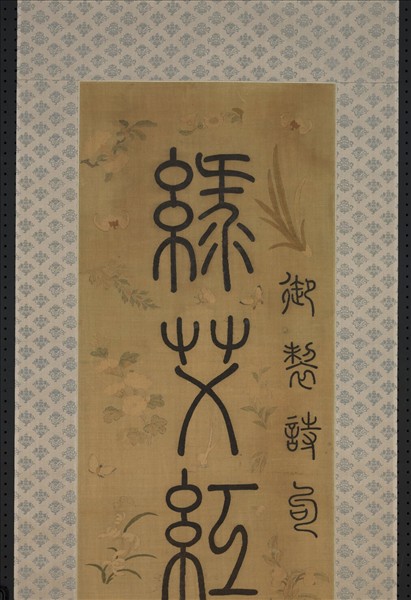 御製詩句
綠艾紅